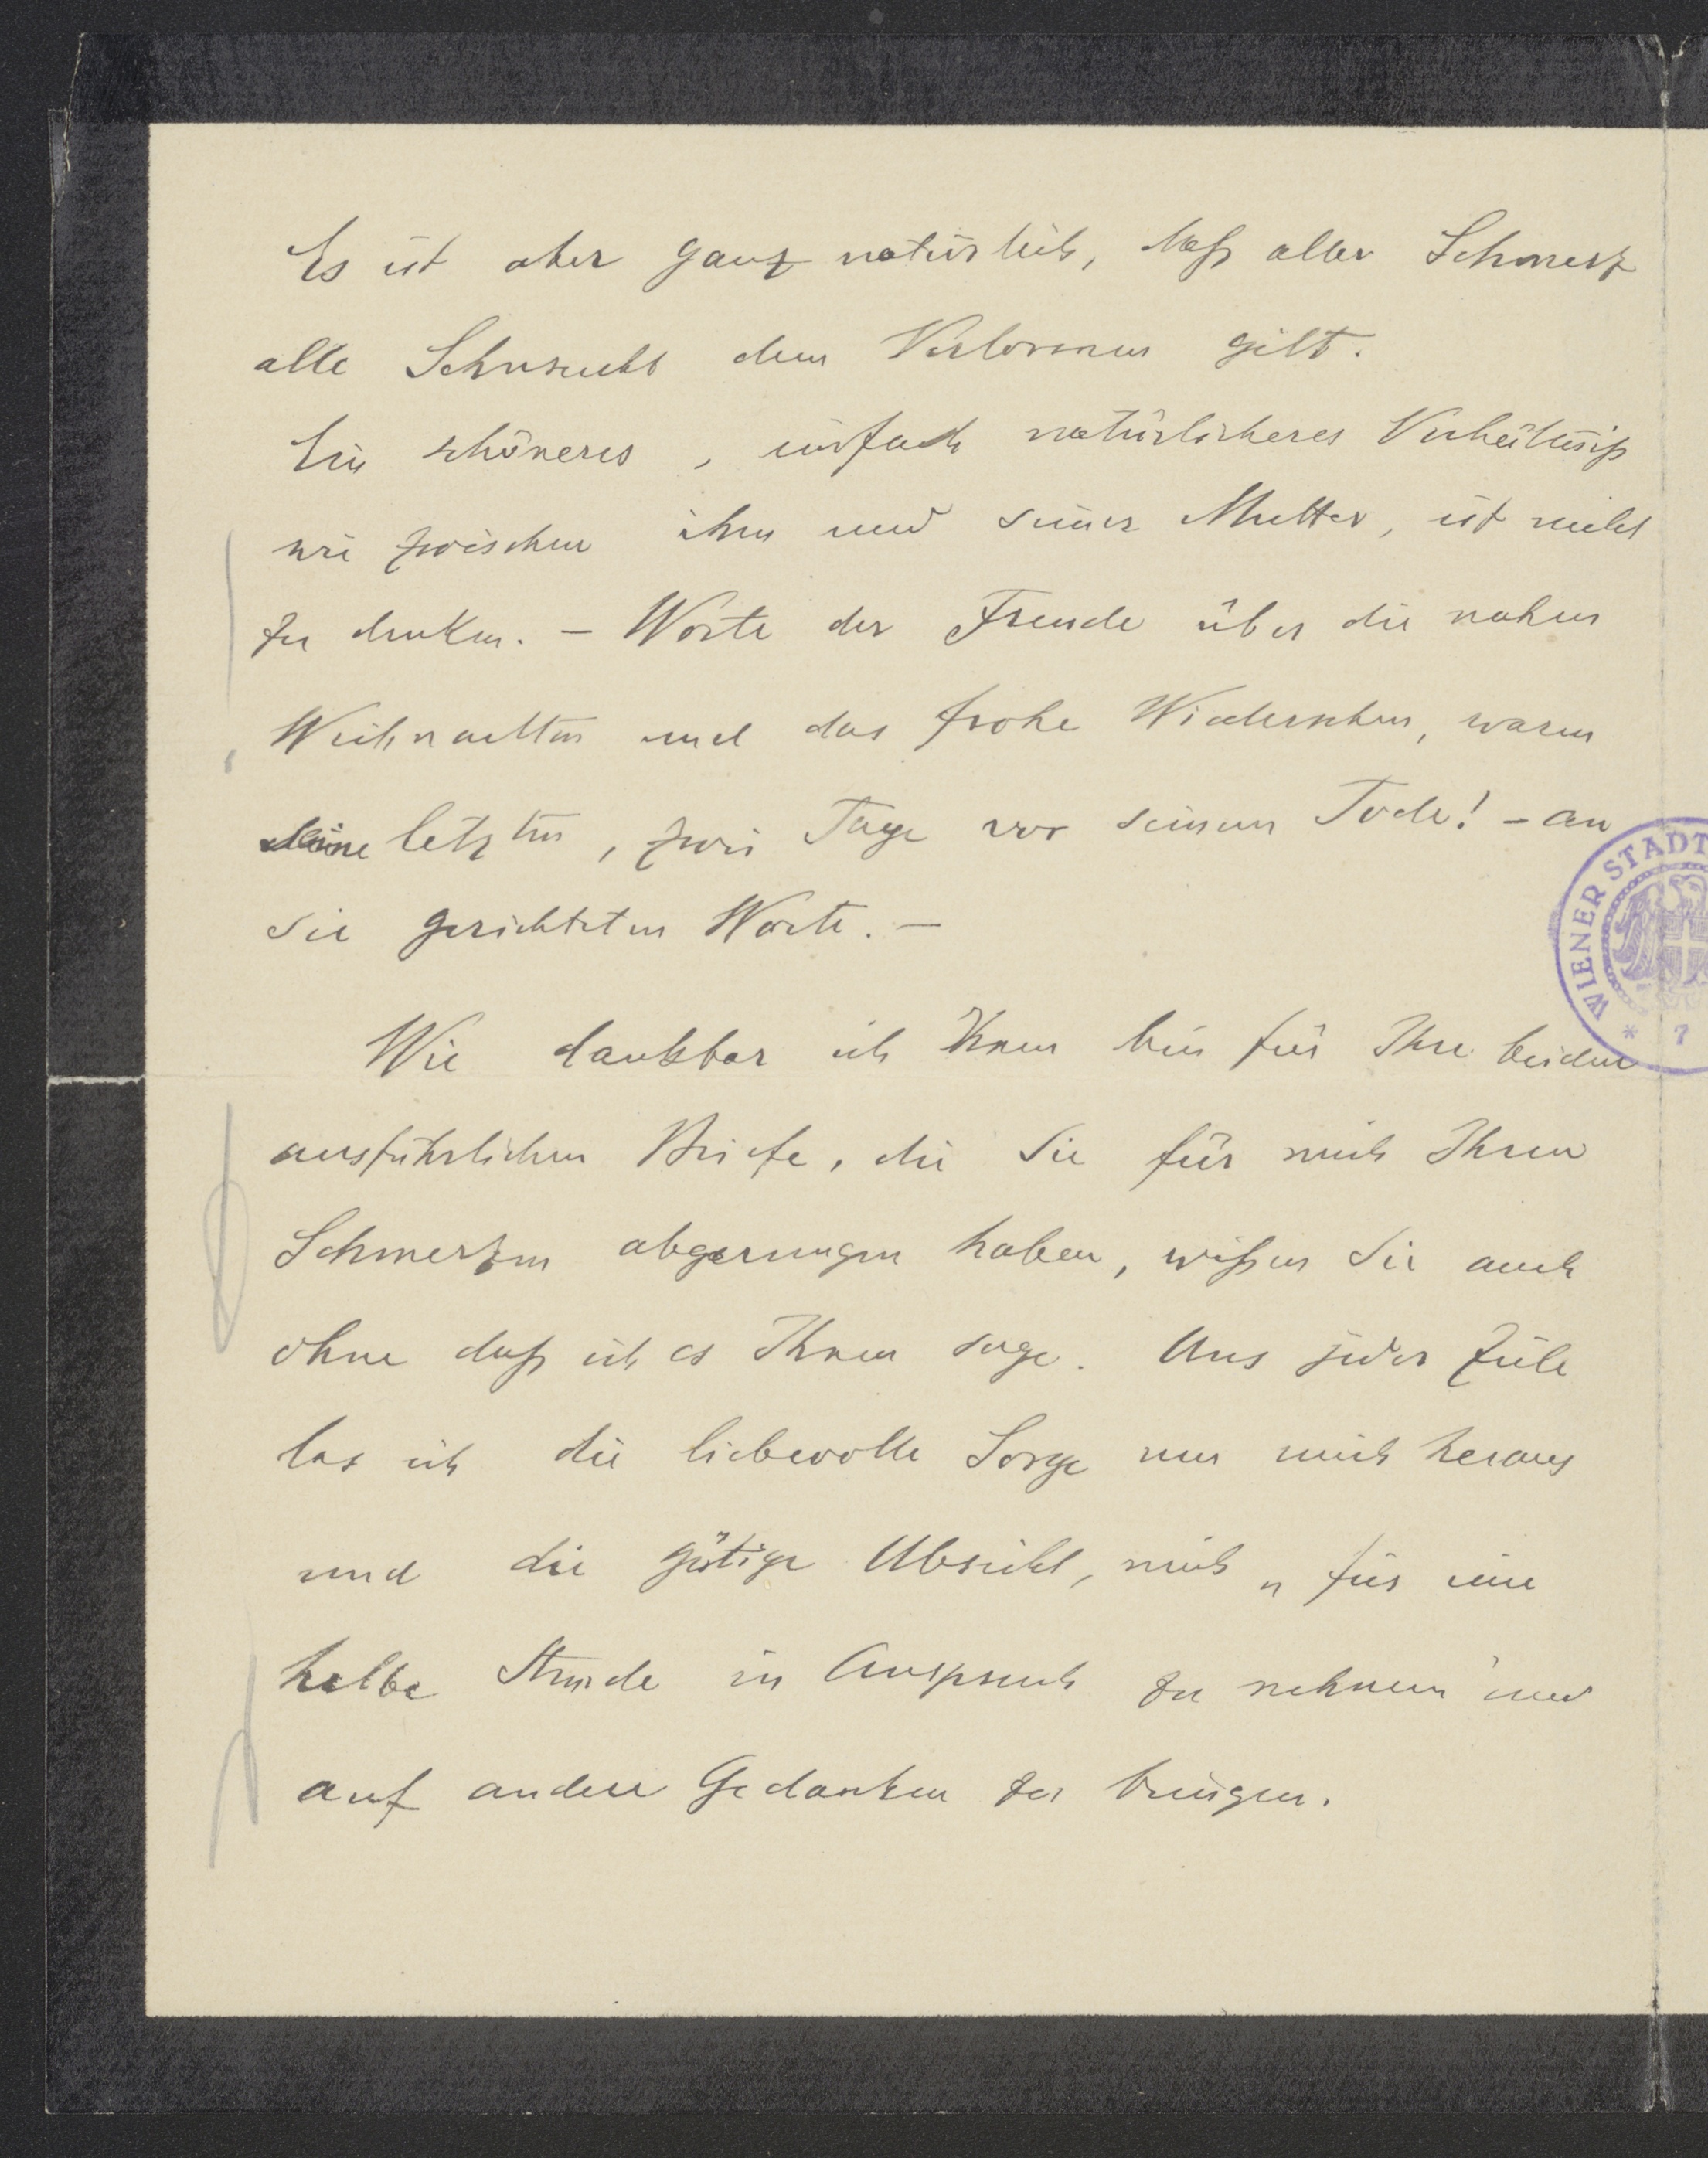 Es ist aber ganz natürlich, daß aller Schmerz
alle Sehnsucht dem Verlorenen gilt.
Ein schöneres, einfach natürlicheres Verhältniß
wie zwischen ihm und seiner Mutter, ist nicht
zu denken. – Worte der Freude über die nahen
Weihnachten und das frohe Wiedersehen, waren
seine letzten, zwei Tage vor seinem Tode! – an
sie gerichteten Worte. –
Wie dankbar ich Ihnen bin für Ihre beiden
ausführlichen Briefe, die Sie für mich Ihren
Schmerzen abgerungen haben, wißen Sie auch
ohne daß ich es Ihnen sage. Aus jeder Zeile
las ich die liebevolle Sorge um mich heraus
und die gütige Absicht, mich „für eine
halbe Stunde in Anspruch zu nehmen“ und
auf andere Gedanken zu bringen.
* WIENER STADT